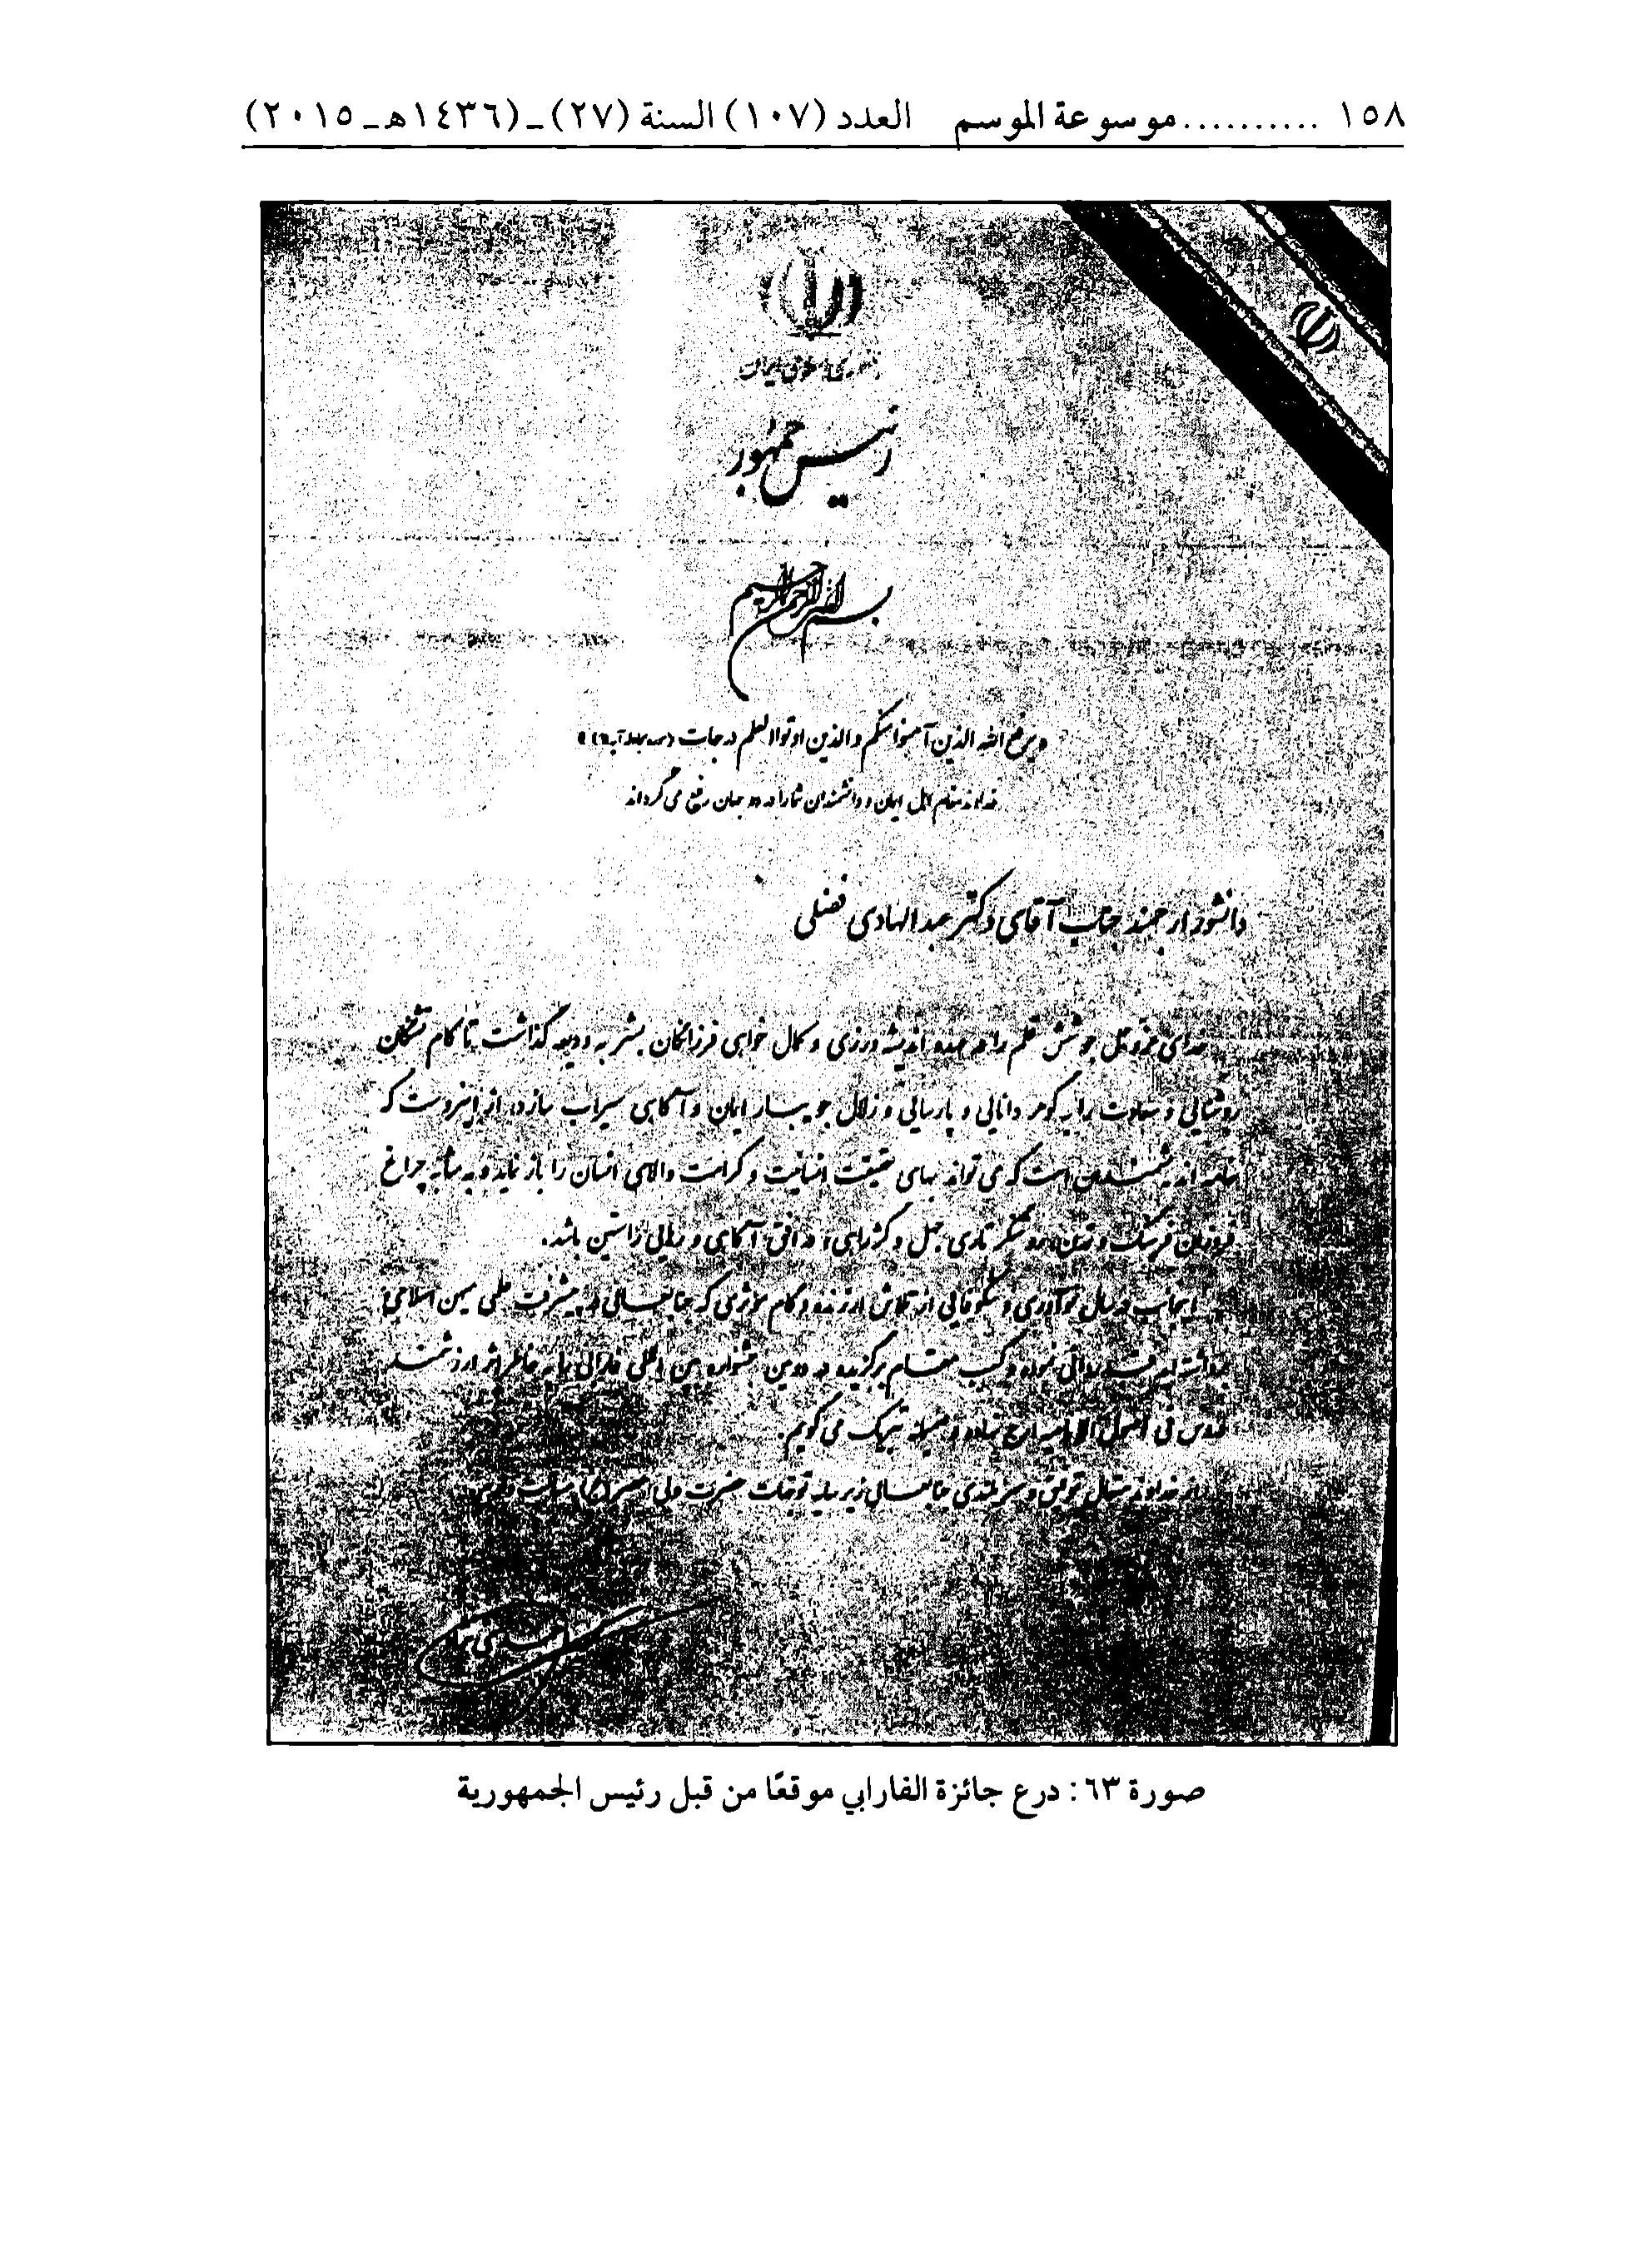 ١٥٨ ..........موسوعة الموسم العدد (١٠٧) السنة (٢٧) ـ (١٤٣٦هـ ـ ٢٠١٥)
رئیس جمهور
بسم الله الرحمن الرحیم
یرفع الله الذین آمنوا منکم والذین اوتوا العلم درجات
خداوند مقام اهل ایمان و دانشمندان شما را در دو جهان رفیع می گرداند
دانشور ارجمند جناب آقای دکتر عبدالهادی فضلی
خدای عزوجل جوشش قلم را در اندیشه ورزی و کمال خواهی فرزانگان بشر به ودیعه گذاشت تا کام تشنگان
روشنایی و سعادت را به گوهر دانایی و پارسایی و زلال جویبار ایمان و آگاهی سیراب سازد. از اینروست که
اندیشمندان است که می تواند حقیقت انسانیت و کرامت والای انسان را باز نماید و به مثابه چراغ
فروزان فرهنگ و تمدن، روشنگر تاری جهل و کژراهی، در افق آگاهی و راستین باشد.
اینجانب در سال نوآوری و شکوفایی از تلاش ارزنده و گام مؤثری که جنابعالی در پیشرفت علمی میهن اسلامی
برداشته اید قدردانی نموده و کسب مقام برگزیده در دومین جشنواره بین المللی فارابی را به خاطر اثر ارزشمند
دروس فی اصول الامامیه ارج نهاده و تبریک می گویم.
از خداوند متعال توفیق و سربلندی جنابعالی زیر سایه توجهات حضرت ولی عصر (عج)
صورة ٦٣: درع جائزة الفارابي موقعًا من قبل رئيس الجمهورية